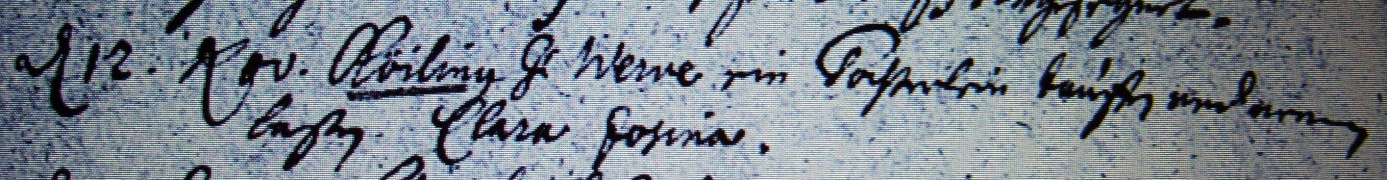 12. Nov. Röiling H Werve ein Töchterlein tauffen und nennen
laßen. Clara Rosina.